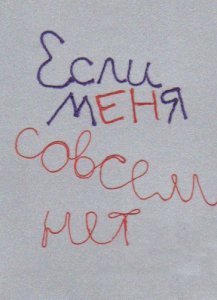 Если
меня
совсем
нет